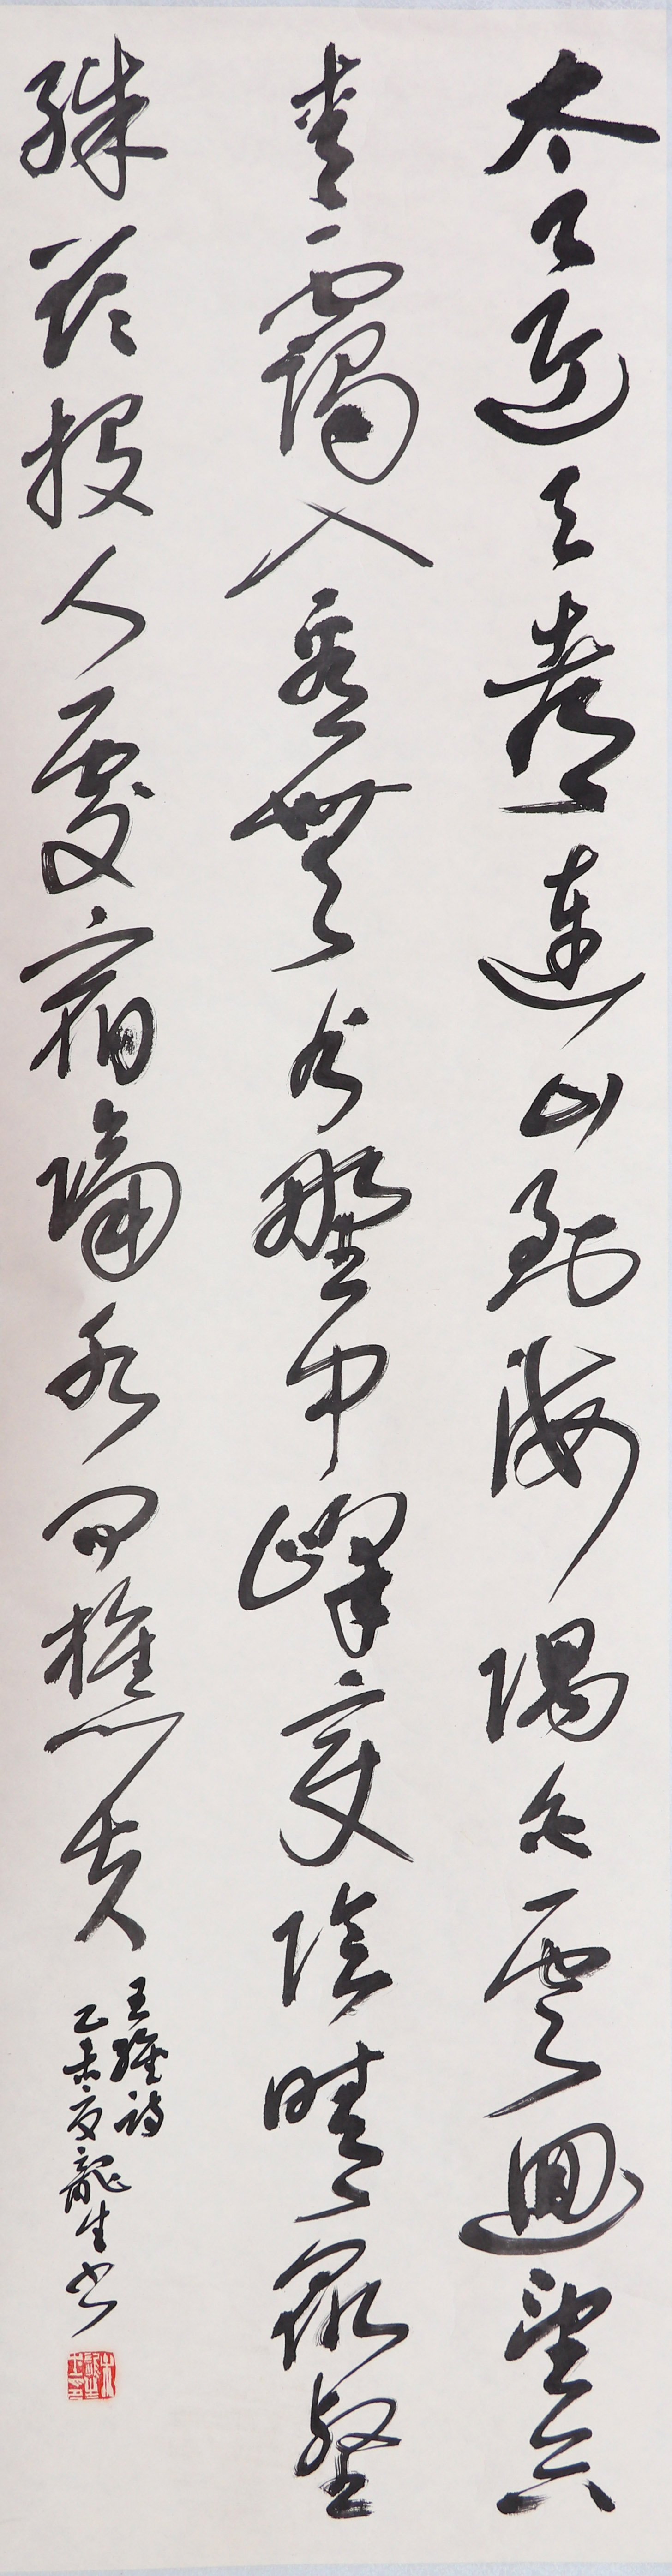 太乙近天都連山到海隅白雲迴望合
青靄入看無分野中峰變陰晴衆壑
殊欲投人處宿隔水問樵夫
王維詩
乙未夏龍生書